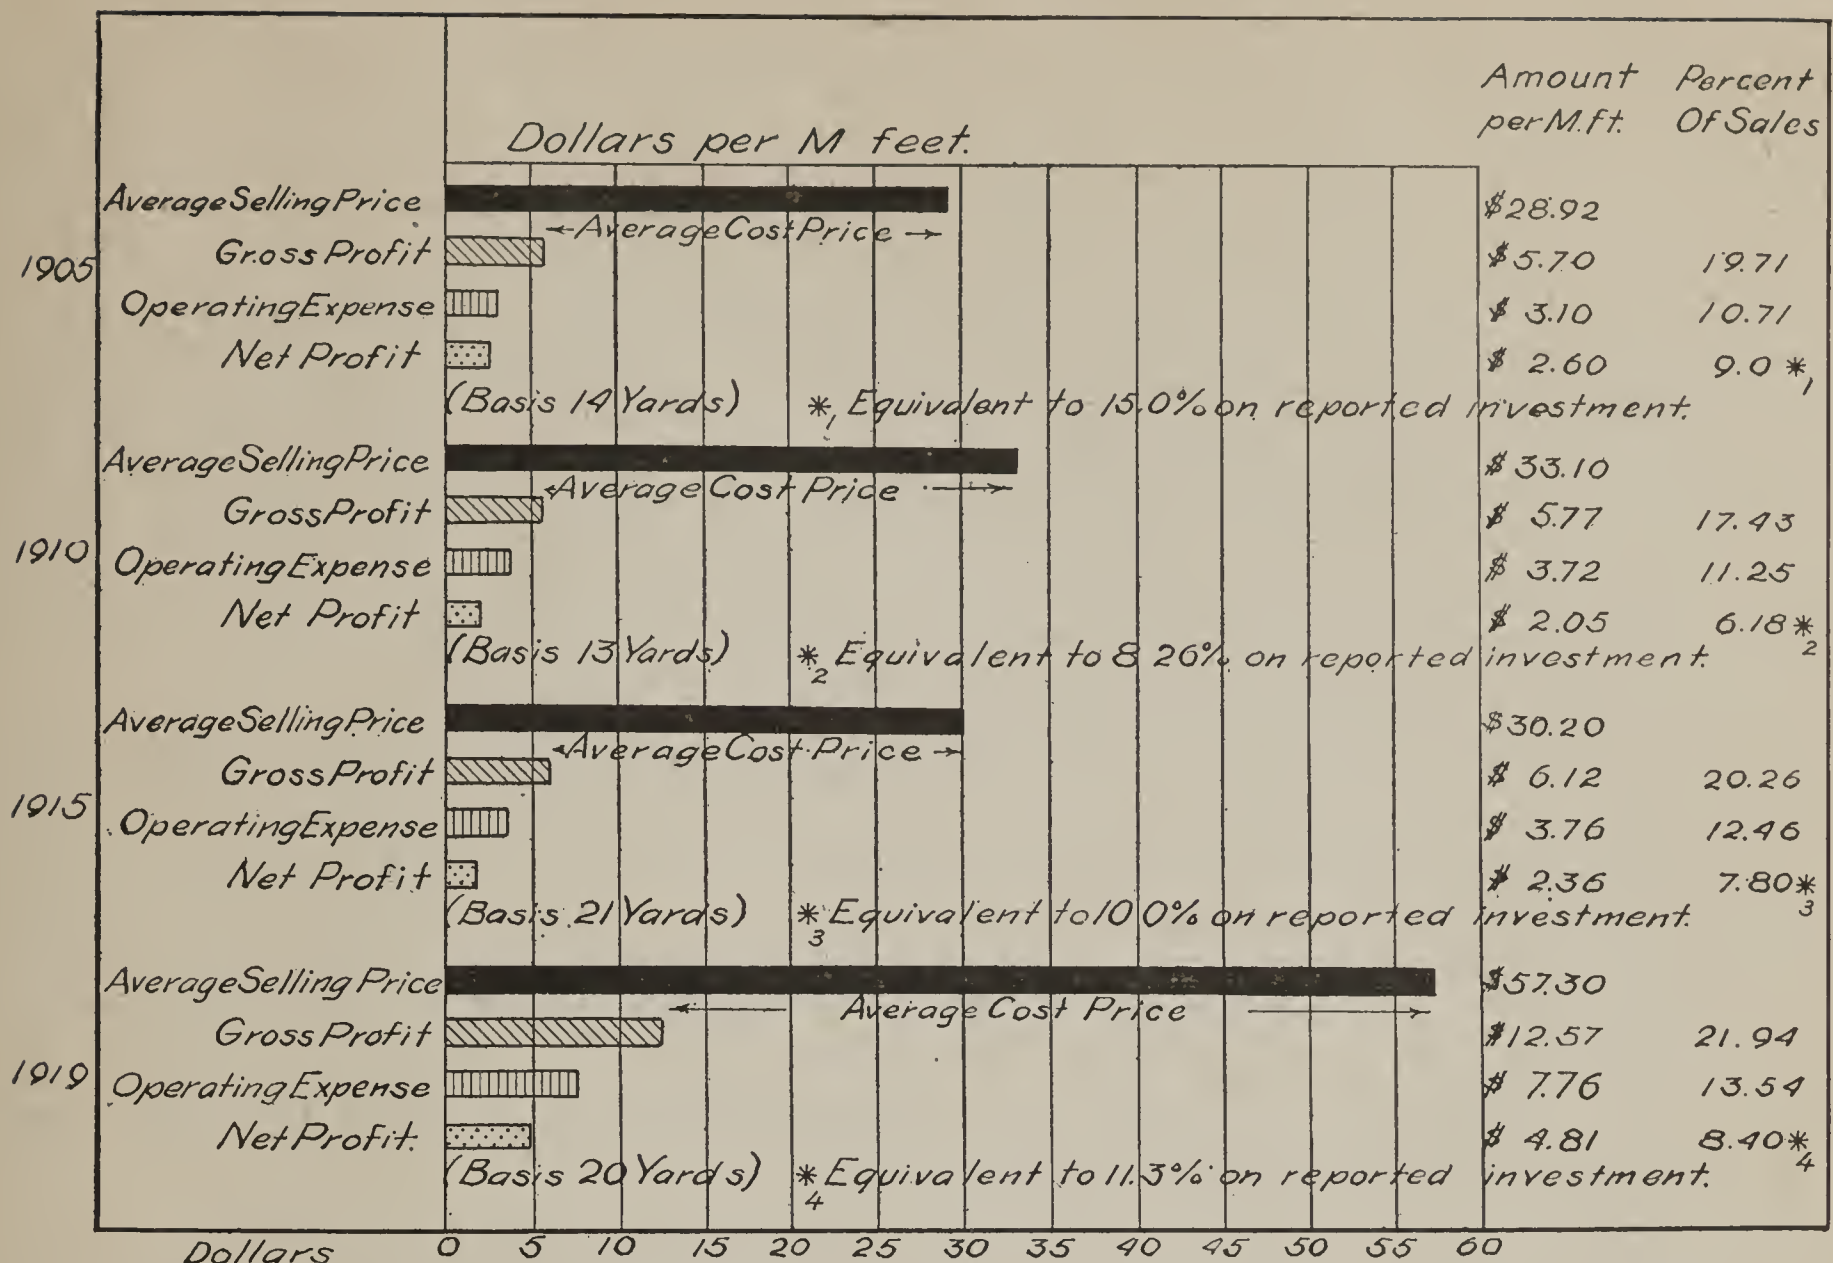 Amount Percent
per M.ft. Of Sales
Dollars per M feet.
1905
Average Selling Price $28.92
←Average Cost Price→
Gross Profit $5.70 19.71
Operating Expense $ 3.10 10.71
Net Profit $ 2.60 9.0 *1
(Basis 14 Yards) *1 Equivalent to 15.0% on reported investment.
1910
Average Selling Price $ 33.10
←Average Cost Price→
Gross Profit $ 5.77 17.43
Operating Expense $ 3.72 11.25
Net Profit $ 2.05 6.18*2
(Basis 13 Yards) *2 Equivalent to 8 26% on reported investment.
1915
Average Selling Price $30.20
←Average Cost Price→
Gross Profit $ 6.12 20.26
Operating Expense $ 3.76 12.46
Net Profit $ 2.36 7.80*3
(Basis 21 Yards) *3 Equivalent to 10 0% on reported investment.
1919
Average Selling Price $57.30
← Average Cost Price →
Gross Profit $12.57 21.94
Operating Expense $ 7.76 13.54
Net Profit. $ 4.81 8.40*4
(Basis 20 Yards) *4 Equivalent to 11.3% on reported investment.
Dollars 0 5 10 15 20 25 30 35 40 45 50 55 60